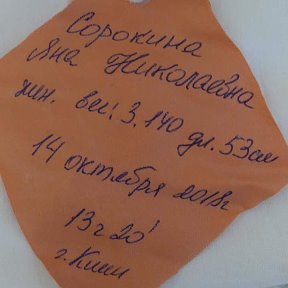 Сорокина
Яна Николаевна
жен. вес: 3.140 дл. 53см
14 октября 2018г
13ч 20'
г.